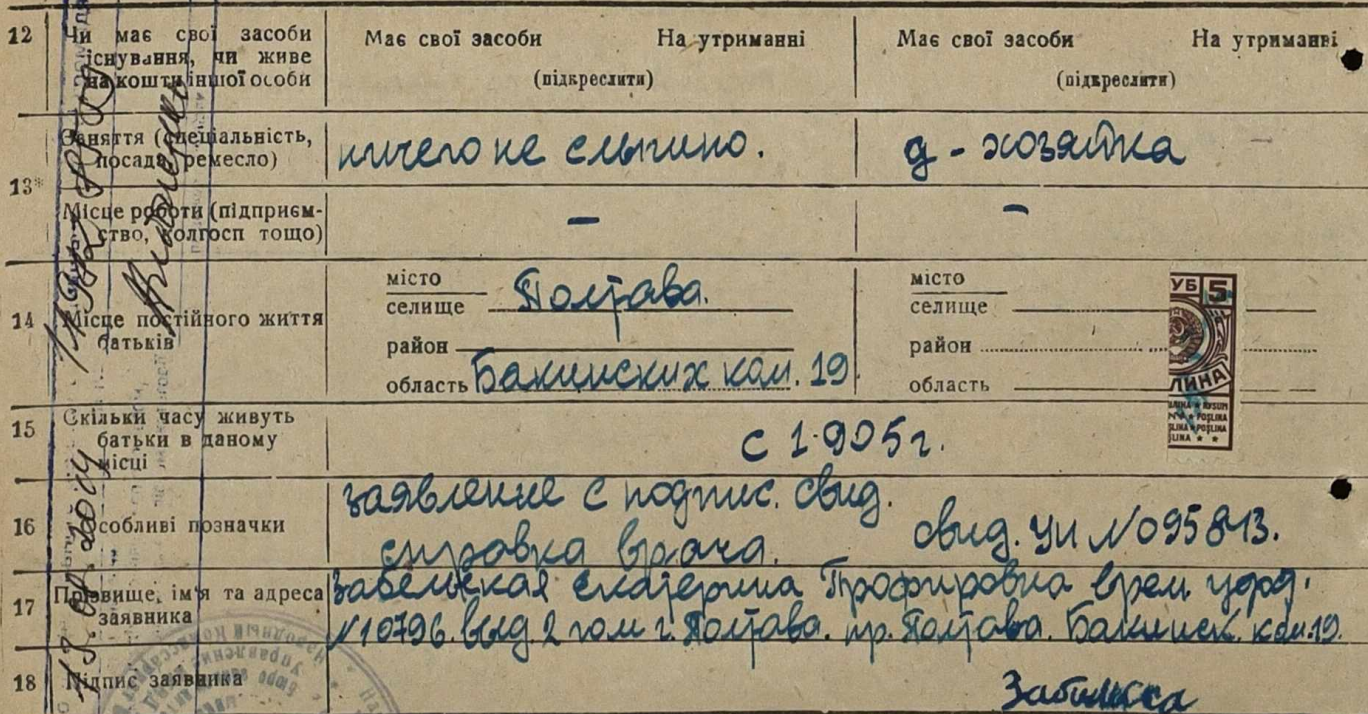 12 Чи має свої засоби існування, чи живе на кошти іншої особи
Має свої засоби На утриманні
(підкреслити)
Має свої засоби На утриманні
(підкреслити)
13* Заняття (спеціальність, посада, ремесло)
ничего не слышно.
д - хозяйка
Місце роботи (підприємство, колгосп тощо)
–
–
14 Місце постійного життя батьків
місто
селище Полтава.
район
область Бакинских ком. 19
місто
селище
район
область
УБ 5
ЛИНА
15 Скільки часу живуть батьки в даному місці
с 1905 г.
16 Особливі позначки
заявление с подпис. свид.
справка врача. свид. УИ № 095813.
17 Прізвище, ім'я та адреса заявника
Забельская Екатерина Профировна врем. удод.
№10796. выд. 2 гом г. Полтава. пр. Полтава. Бакинск. ком. 19.
18 Підпис заявника